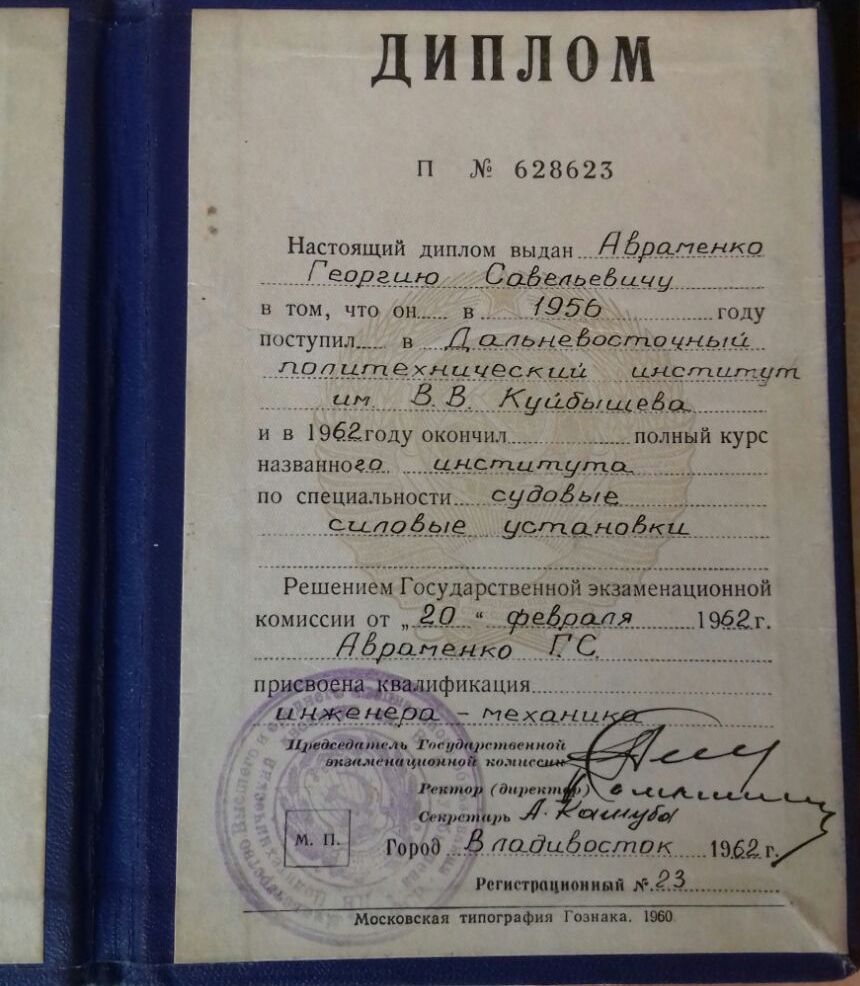 ДИПЛОМ
П № 628623
Настоящий диплом выдан Авраменко
Георгию Савельевичу
в том, что он в 1956 году
поступил в Дальневосточный
политехнический институт
им. В. В. Куйбышева
и в 1962 году окончил полный курс
названного института
по специальности судовые
силовые установки
Решением Государственной экзаменационной
комиссии от „20“ февраля 1962 г.
Авраменко Г.С.
присвоена квалификация
инженера – механика
Председатель Государственной
экзаменационной комиссии
Ректор (директор)
Секретарь А. Кашуба
М. П.
Город Владивосток 1962 г.
Регистрационный №. 23
Московская типография Гознака. 1960